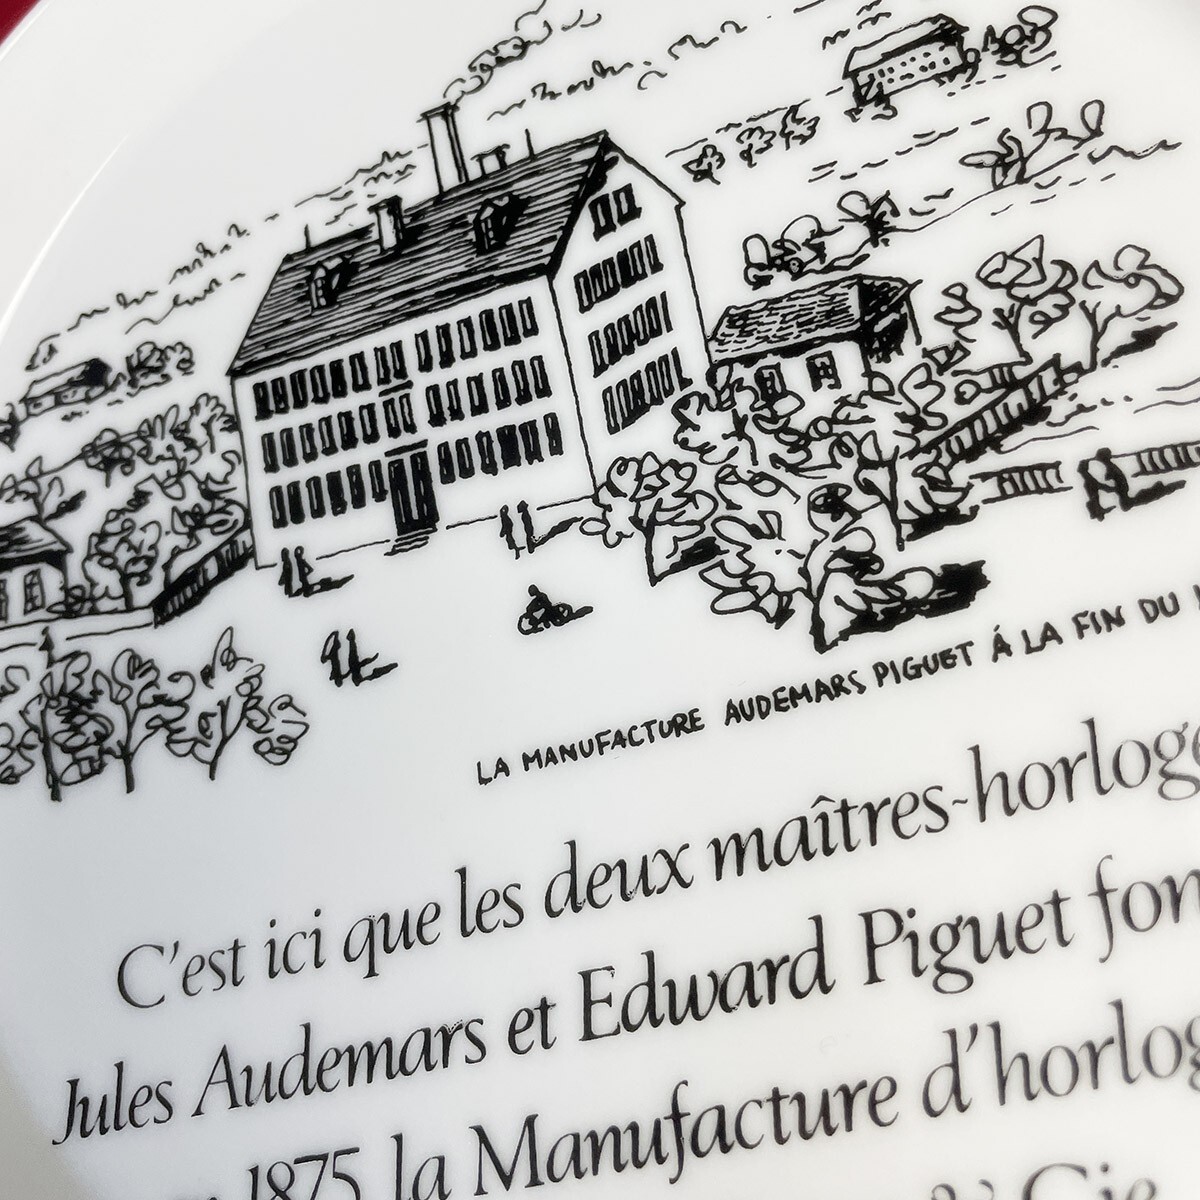 LA MANUFACTURE AUDEMARS PIGUET Á LA FIN DU
C'est ici que les deux maîtres-horloge
Jules Audemars et Edward Piguet fon
1875 la Manufacture d'horlog
& Cie